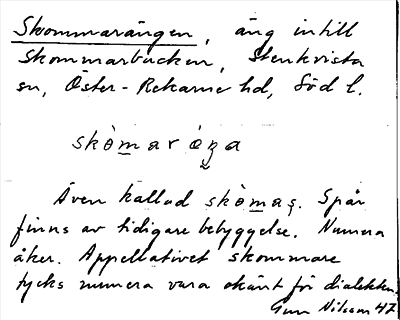 Skommarängen, äng intill
Skommarbacken, Stenkvista
sn, Öster-Rekarne hd, Söd l.
skòmaráŋa
Även kallad skòmaş. Spår
finns av tidigare bebyggelse. Numera
åker. Appellativet skommare
tycks numera vara okänt för dialekten.
Gun Nilsson 47